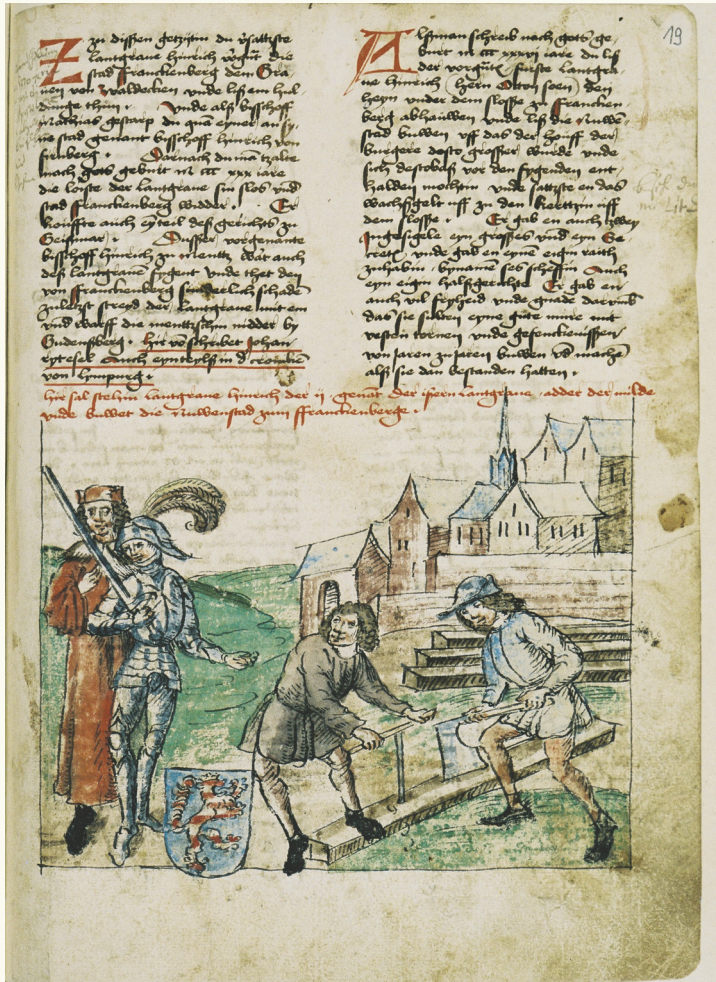 19
zu dissen getzytin du vsattzte
Lantgraue Hinrich
stad Franckenberg dem Gra
uen von Waldecken vnde liß em hul
dunge thun. Vnde alß bisschoff
Mathias gestarp du quā eyner an sy
ne stad genant bisschoff Hinrich von
firnberg. Darnach du mā tzalte
nach gots geburt M ccc xxx iare
die loiste der Lantgraue sin slos vnd
stad Franckenberg widder. Er
kouffte auch eyteil deß gerichts zu
Geismar. Dusser vorgenante
bisschoff Hinrich zu Mentz wāt auch
deß lantgrauē fygent vnde thet den
von Franckenberg sunderlich schadē
zuletzst streyd der lantgraue mit em
vnd warff die mentzschin nidder by
Gudensberg. Hir võ schribet Johan
rytesel Auch eynteylß in d' croniken
von lympurg.
Alßman schreib nach gots ge
burt M ccc xxxvi iare du liß
der furste Lantgra
ue Hinrich (hern Otten soen) den
heyn vnder dem slosse zu Francken
berg abhauwen vnde liß die Nuwen
stad buwen vff das der houff der
burgere desto grosser wurde vnde
sich destobaß vor den fygenden ent
halden mochtin vnde sattzte en das
wachßgelt uff zu den kertzin uff
dem slosse. Er gab en auch tzwey
Ingesigele eyn grosses vnd eyn Se
cretū vnde gab en eyne eigin raith
zuhabin byname seß scheffin Auch
eyn eigin halßgerichte Er gab en
auch vil fryheid vnde gnade darumb
daß sie sulden eyne gute mure mit
vestin tornen vnde gefenckenissen
von jaren zu jaren buwen vñ machē
alß sie dan bestanden hatten.
Hir sal stehin Lantgraue Hinrich der ij genāt der isern Lantgraue adder der milde
vnde buwet die Nuwenstad zum Franckenberge.